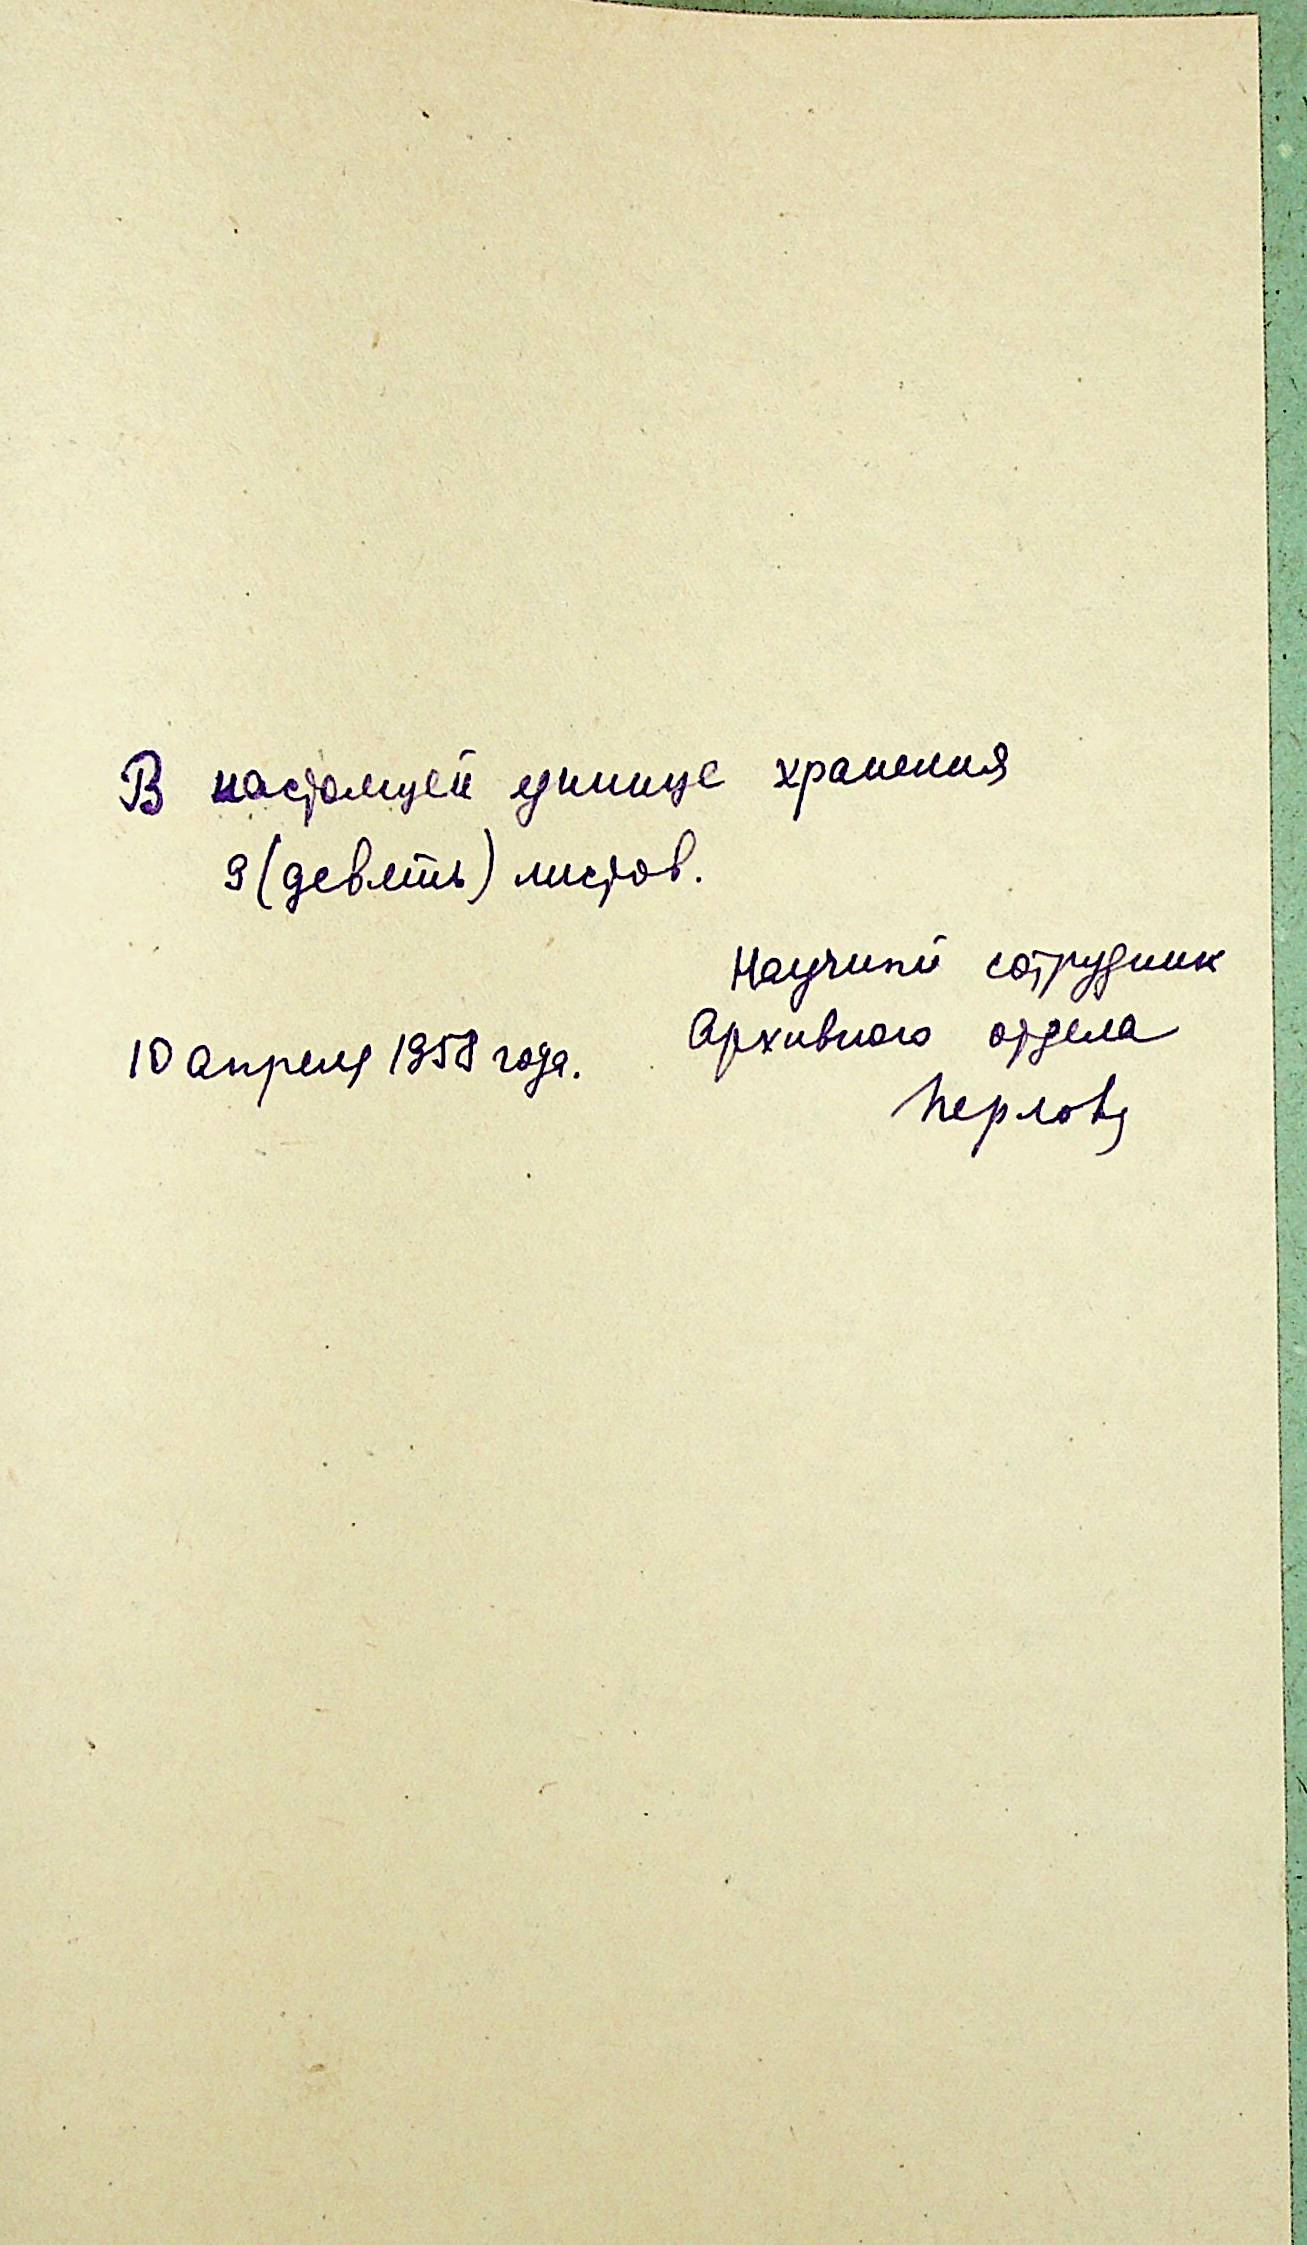 В настоящей единице хранения
9 (девять) листов.
Научный сотрудник
Архивного отдела
10 апреля 1958 года.
Перлова